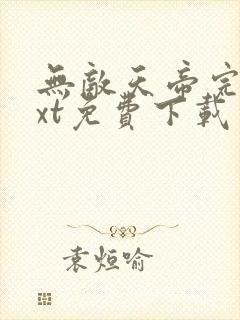 無敵天帝完
xt免費下載
袁烜喻